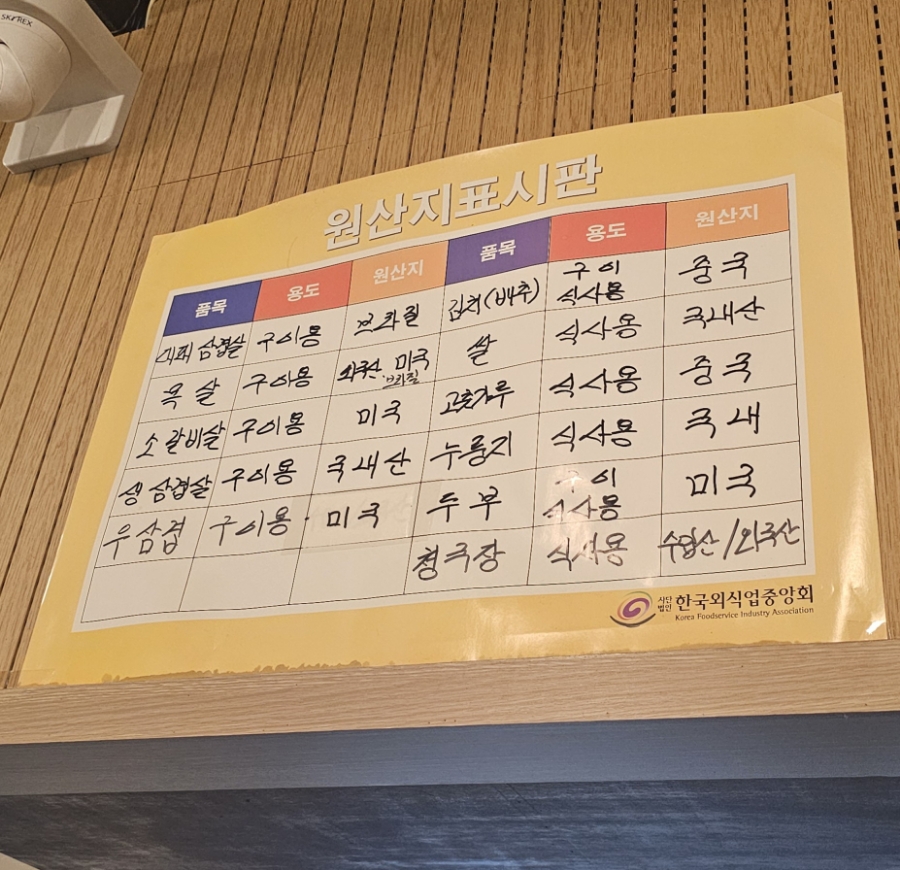 SKYREX
원산지표시판
품목 용도 원산지 품목 용도 원산지
대패 삼겹살 구이용 브라질 김치(배추) 구이 식사용 중국
목살 구이용 미국 브라질 쌀 식사용 국내산
소갈비살 구이용 미국 고춧가루 식사용 중국
생삼겹살 구이용 국내산 누룽지 식사용 국내
우삼겹 구이용 미국 두부 구이 식사용 미국
청국장 식사용 수입산/외국산
사단법인 한국외식업중앙회
Korea Foodservice Industry Association